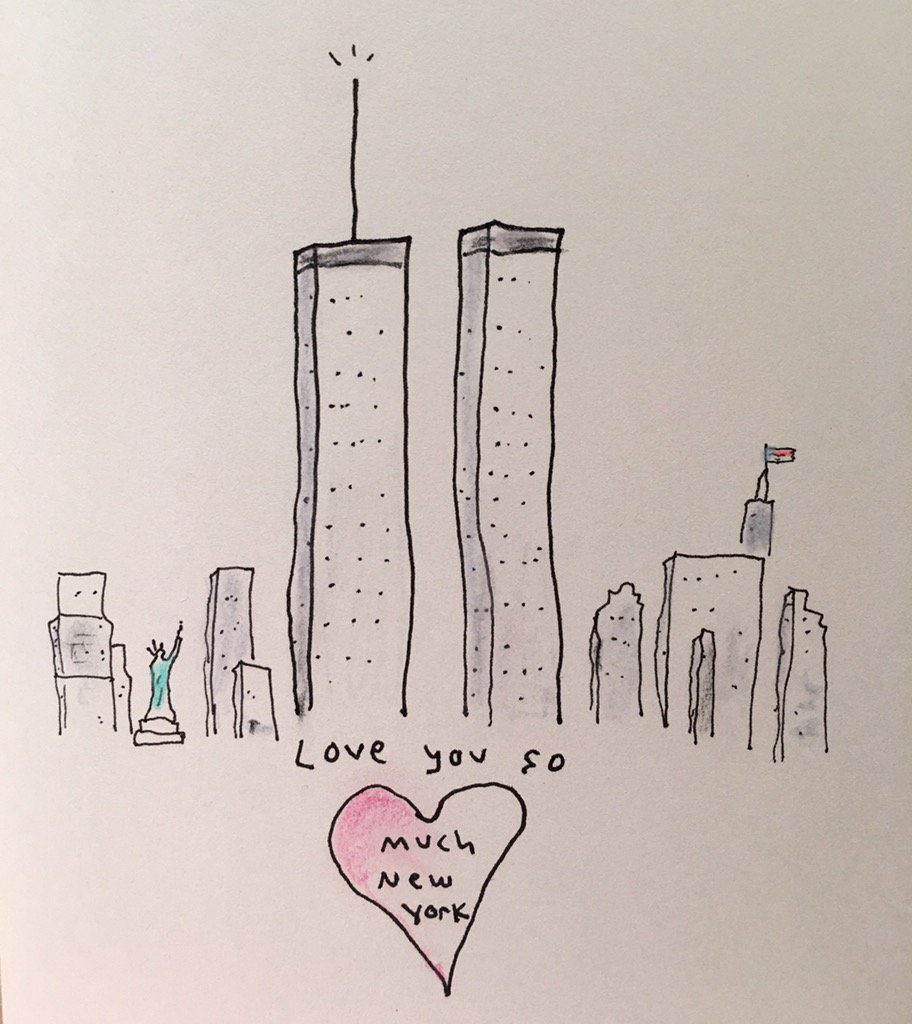 Love you so
much
New
York